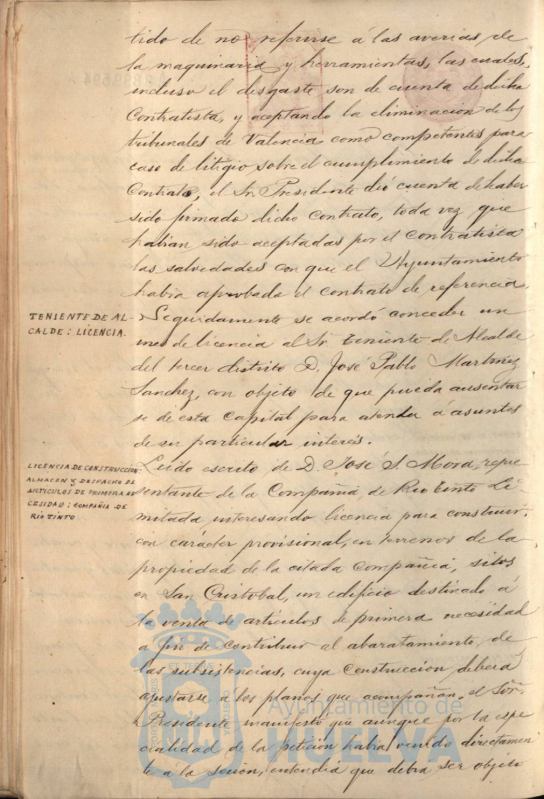 tido de no referirse á las averías de
la maquinaria y herramientas, las cuales,
incluso el desgaste son de cuenta de dicho
Contratista, y aceptando la eliminación de los
tribunales de Valencia como competentes para
caso de litigio sobre el cumplimiento de dicho
Contrato, el Sr. Presidente dió cuenta de haber
sido firmado dicho contrato, toda vez que
habían sido aceptadas por el contratista
las salvedades con que el Ayuntamiento
había aprobado el contrato de referencia.
TENIENTE DE AL-
CALDE: LICENCIA.
Seguidamente se acordó conceder un
mes de licencia al Sr. Teniente de Alcalde
del tercer distrito D. José Pablo Martínez
Sanchez, con objeto de que pueda ausentar
se de esta Capital para atender á asuntos
de su particular interés.
LICENCIA DE CONSTRUCCION
ALMACEN Y DESPACHO DE
ARTICULOS DE PRIMERA NE
CESIDAD: COMPAÑIA DE
RIO TINTO
Leido escrito de D. José S. Mora, repre
sentante de la Compañía de Rio Tinto Li-
mitada interesando licencia para construir,
con carácter provisional, en terrenos de la
propiedad de la citada Compañía, sitos
en San Cristobal, un edificio destinado á
la venta de artículos de primera necesidad
á fin de contribuir al abaratamiento de
las subsistencias, cuya construccion deberá
ajustarse á los planos que acompañan, el Sor.
Presidente manifestó que aunque por la espe
cialidad de la petición había venido directamen
te á la sesión, entendía que debía ser objeto
Ayuntamiento de
HUELVA